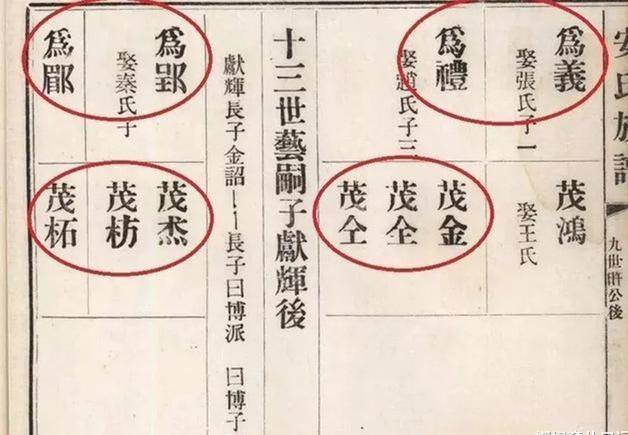 安氏族譜
九世時公後
為義
娶張氏子一
為禮
娶趙氏子三
茂鴻
娶王氏
茂金
茂全
茂仝
十三世藝嗣子獻輝後
獻輝長子金詔——長子曰博派 曰博子
為郢
娶秦氏子
為郿
茂杰
茂枋
茂柘